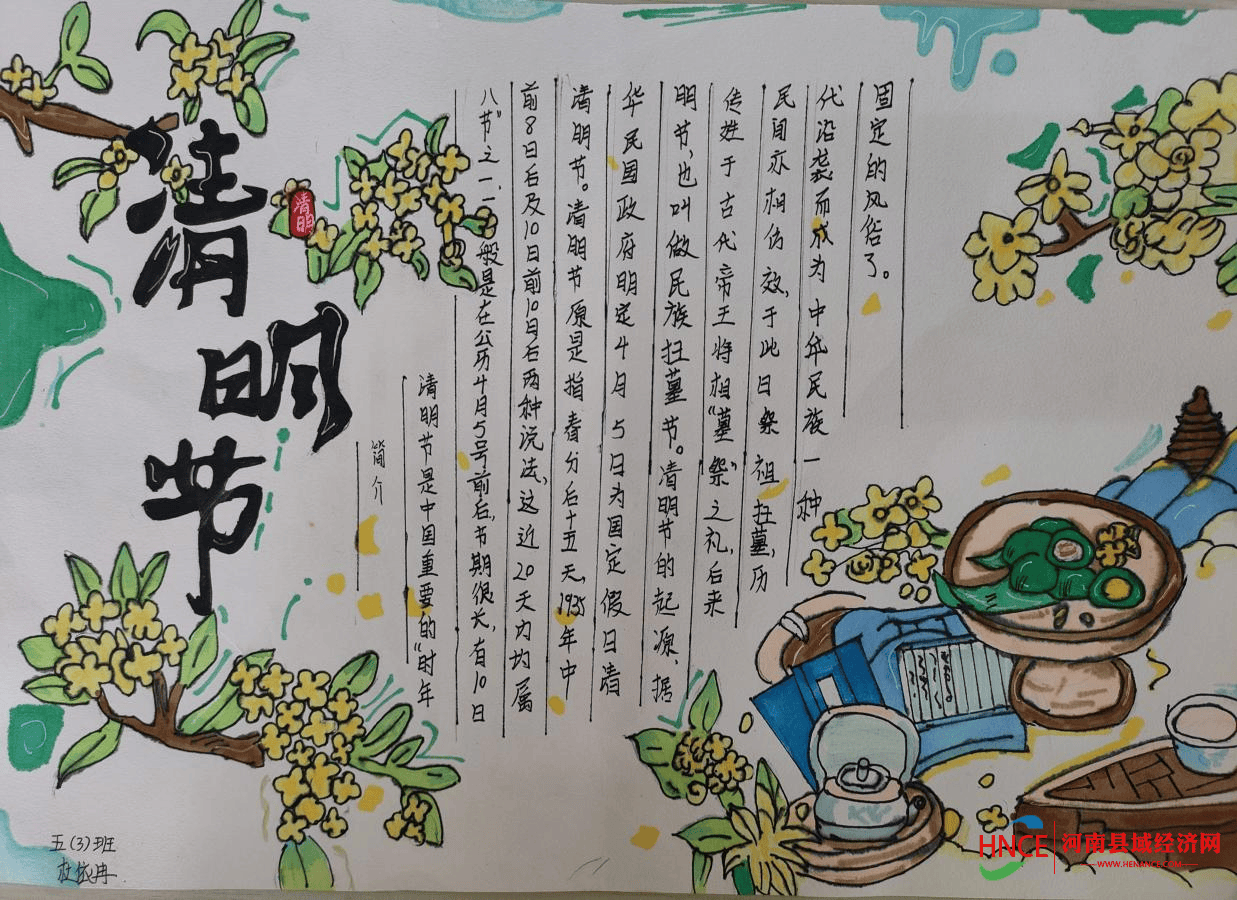 清明节
清明
简介
清明节是中国重要的“时年
八节”之一,一般是在公历4月5号前后,节期很长,有10日
前8日后及10日前10日后两种说法,这近20天内均属
清明节。清明节原是指春分后十五天,1935年中
华民国政府明定4月5日为国定假日清
明节,也叫做民族扫墓节。清明节的起源,据
传姓于古代帝王将相“墓祭”之礼,后来
民间亦相仿效,于此日祭祖扫墓,历
代沿袭而成为中华民族一种
固定的风俗了。
五(3)班
杜依冉
HNCE 河南县域经济网